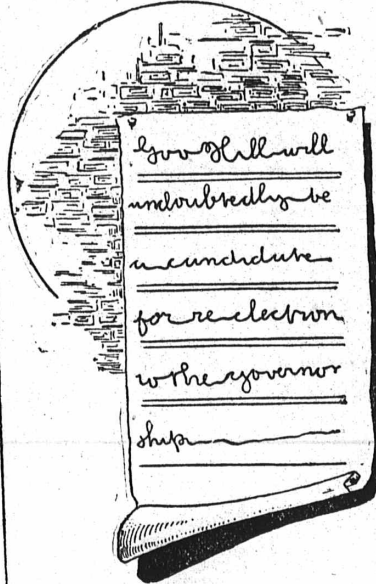 Gov Hill will
undoubtedly be
a candidate
for re election
to the governor
ship